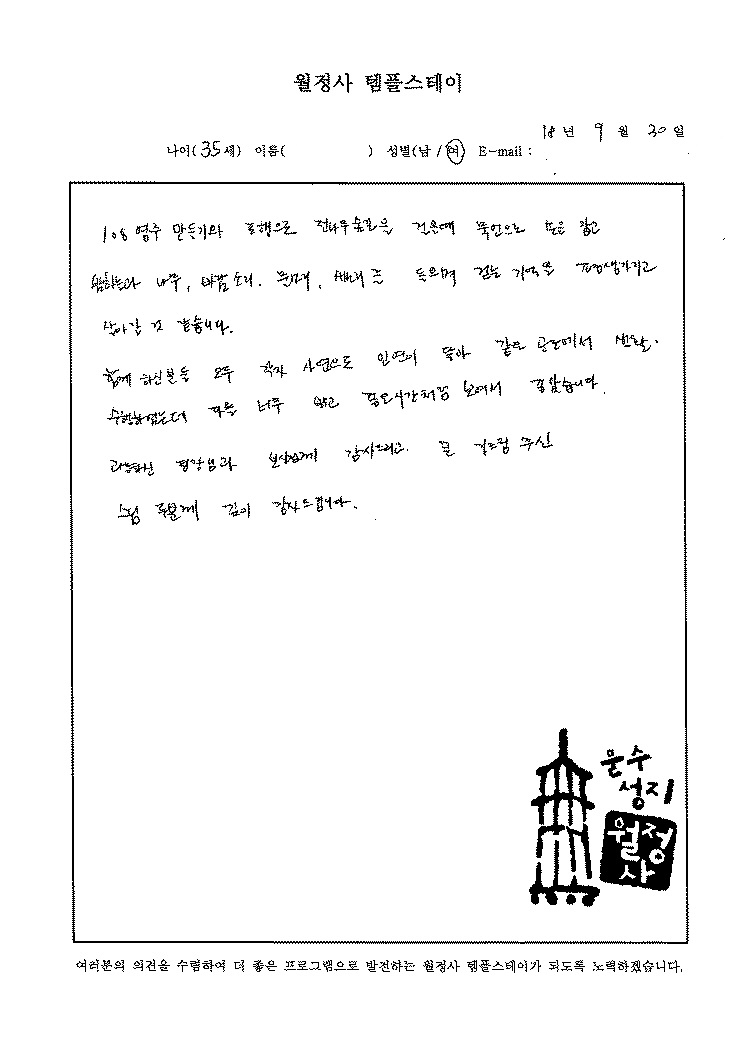 월정사 템플스테이
18 년 9 월 30 일
나이( 35 세) 이름( ) 성별(남 / 여) E-mail :
108 염주 만들기와 포행으로 전나무숲길을 걸은데 묵언으로 눈을 감고
나무, 바람소리, 들으며 걷는 기억을 평생생각하고
살아갈 것 같습니다.
함께 하신분들 모두 각자 사연으로 인연이 닿아 같은 공간에서
수행하였는데 다들 너무 보여서 좋았습니다.
팀장님과 보살님께 감사드리고. 큰 가르침 주신
스님 두분께 깊이 감사드립니다.
문수
성지
월정
사
여러분의 의견을 수렴하여 더 좋은 프로그램으로 발전하는 월정사 템플스테이가 되도록 노력하겠습니다.